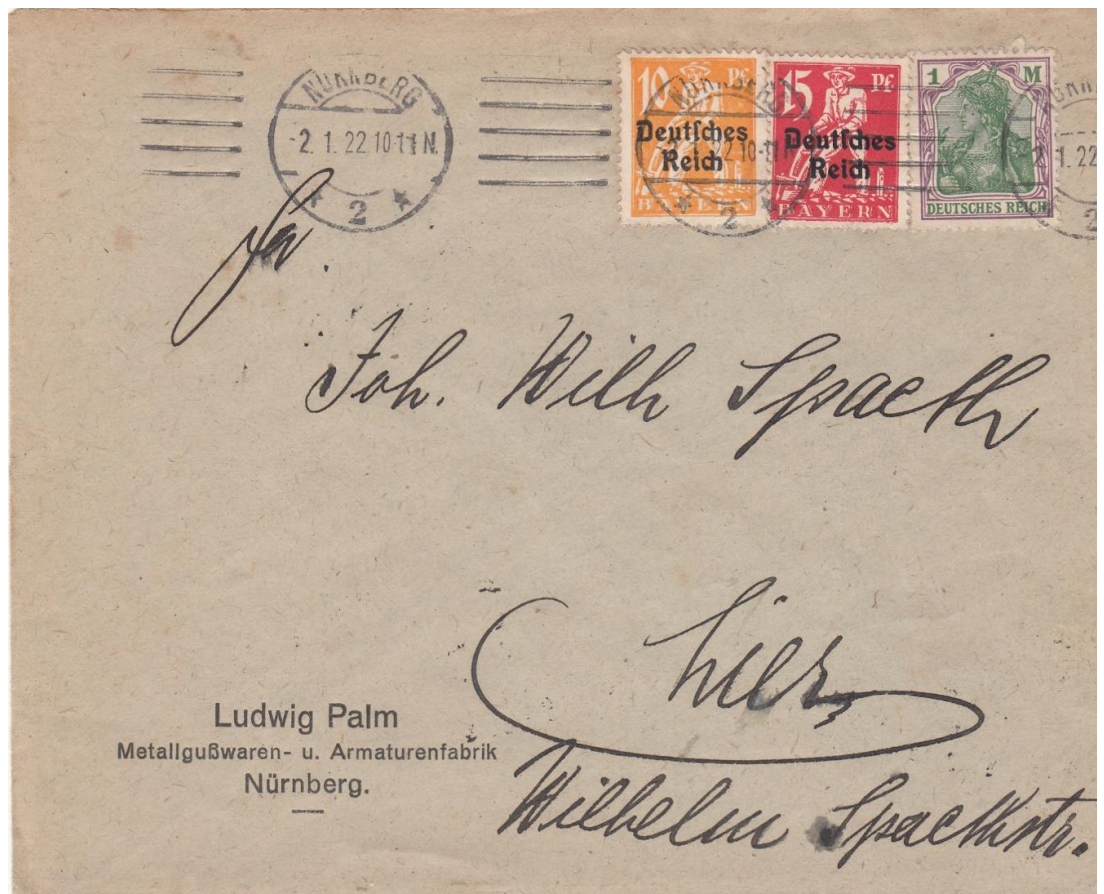 NÜRNBERG
-2. 1. 22 10-11 N.
* 2 *
10 Pf
Deutsches
Reich
BAYERN
15 Pf
Deutsches
Reich
BAYERN
1 M
DEUTSCHES REICH
NÜRNBERG
22 10-11
* 2 *
1.22
2
Fa.
Joh. Wilh Spaeth
hier
Wilhelm Spaethstr.
Ludwig Palm
Metallgußwaren- u. Armaturenfabrik
Nürnberg.